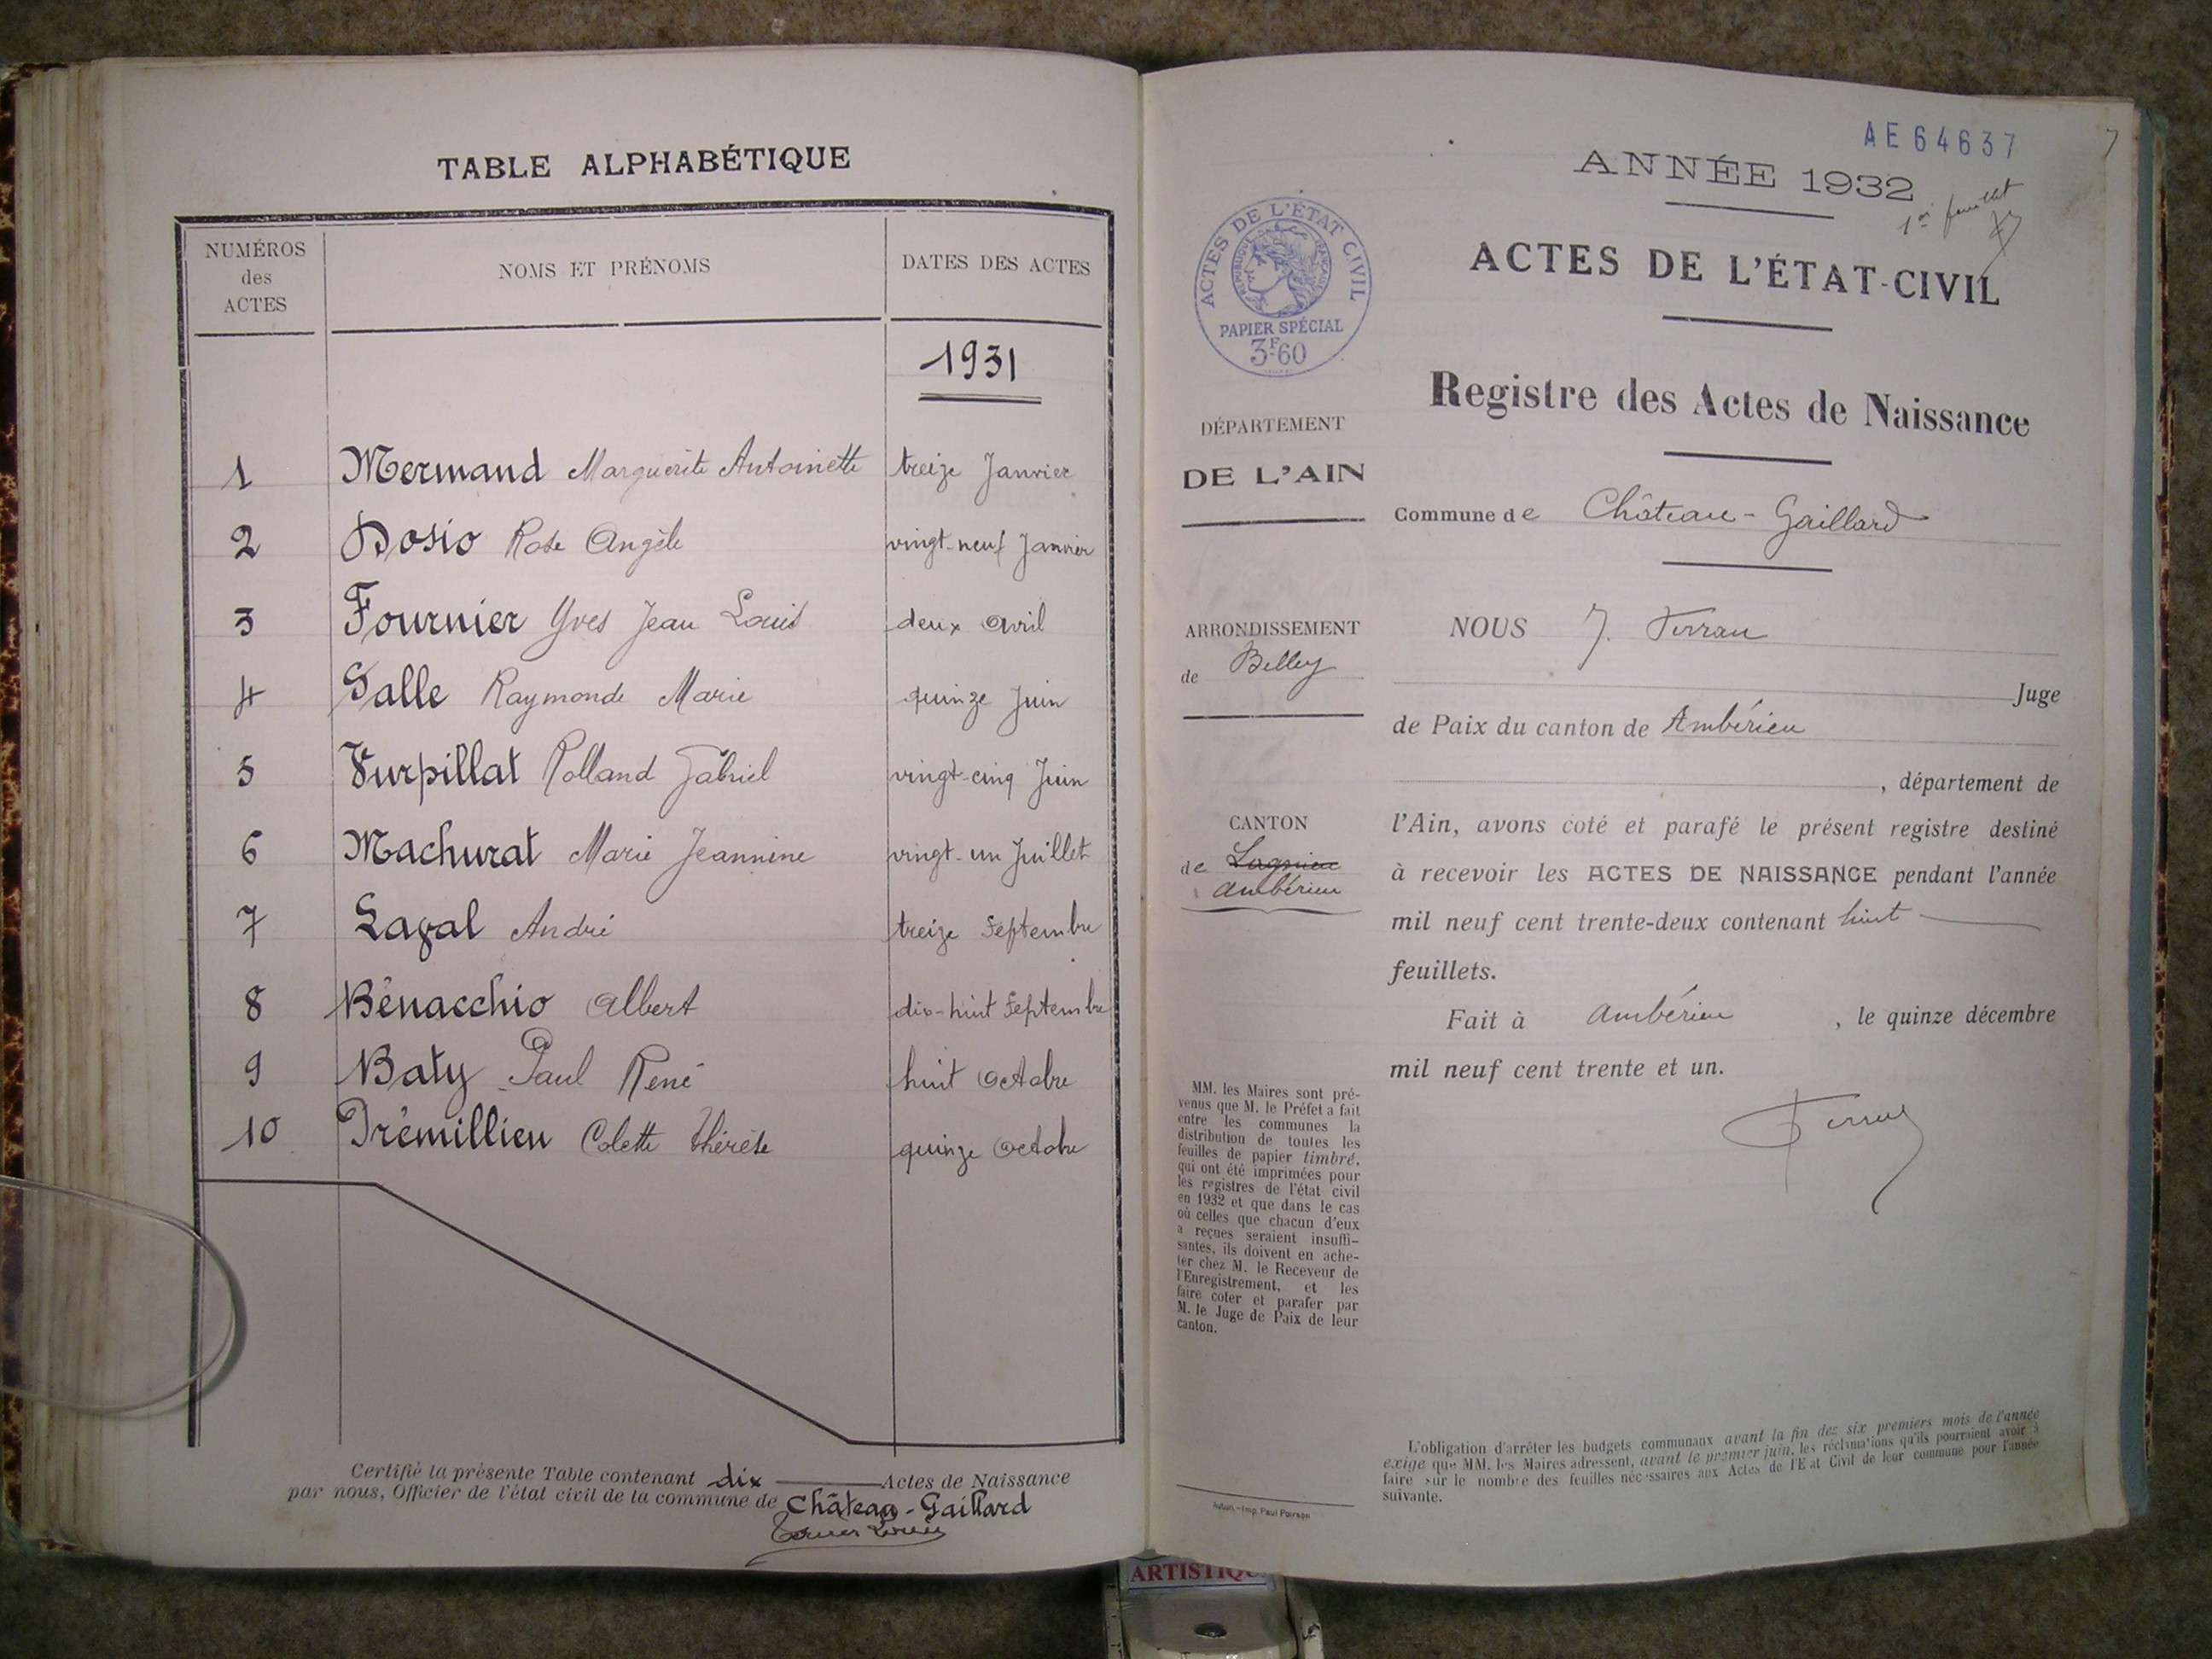 TABLE ALPHABÉTIQUE
NUMÉROS
des
ACTES
NOMS ET PRÉNOMS
DATES DES ACTES
1931
1 Mermand Marguerite Antoinette treize Janvier
2 Dosio Rose Angèle vingt-neuf Janvier
3 Fournier Yves Jean Louis deux Avril
4 Salle Raymonde Marie quinze Juin
5 Vurpillat Rolland Gabriel vingt-cinq Juin
6 Machurat Marie Jeannine vingt-un Juillet
7 André treize Septembre
8 Bénacchio Albert dix-huit Septembre
9 Baty Paul René huit Octobre
10 Trémillieu Colette Thérèse quinze Octobre
Certifié la présente Table contenant dix Actes de Naissance
par nous, Officier de l'état civil de la commune de Château-Gaillard
AE64637
7
ANNÉE 1932
1er feuillet
ACTES DE L'ÉTAT CIVIL
RÉPUBLIQUE FRANÇAISE
PAPIER SPÉCIAL
3F60
ACTES DE L'ÉTAT-CIVIL
Registre des Actes de Naissance
DÉPARTEMENT
DE L'AIN
Commune de Château-Gaillard
ARRONDISSEMENT
de Belley
CANTON
de Lagnieu
Ambérieu
NOUS J. Ferran
Juge
de Paix du canton de Ambérieu
, département de
l'Ain, avons coté et parafé le présent registre destiné
à recevoir les ACTES DE NAISSANCE pendant l'année
mil neuf cent trente-deux contenant huit
feuillets.
Fait à Ambérieu , le quinze décembre
mil neuf cent trente et un.
MM. les Maires sont pré-
venus que M. le Préfet a fait
entre les communes la
distribution de toutes les
feuilles de papier timbré,
qui ont été imprimées pour
les registres de l'état civil
en 1932 et que dans le cas
où celles que chacun d'eux
a reçues seraient insuffi-
santes, ils doivent en ache-
ter chez M. le Receveur de
l'Enregistrement, et les
faire coter et parafer par
M. le Juge de Paix de leur
canton.
L'obligation d'arrêter les budgets communaux avant la fin des six premiers mois de l'année
exige que MM. les Maires adressent, avant le premier juin, les réclamations qu'ils pourraient avoir à
faire sur le nombre des feuilles nécessaires aux Actes de l'Etat Civil de leur commune pour l'année
suivante.
Autun.-Imp. Paul Poirson
ARTISTIQU